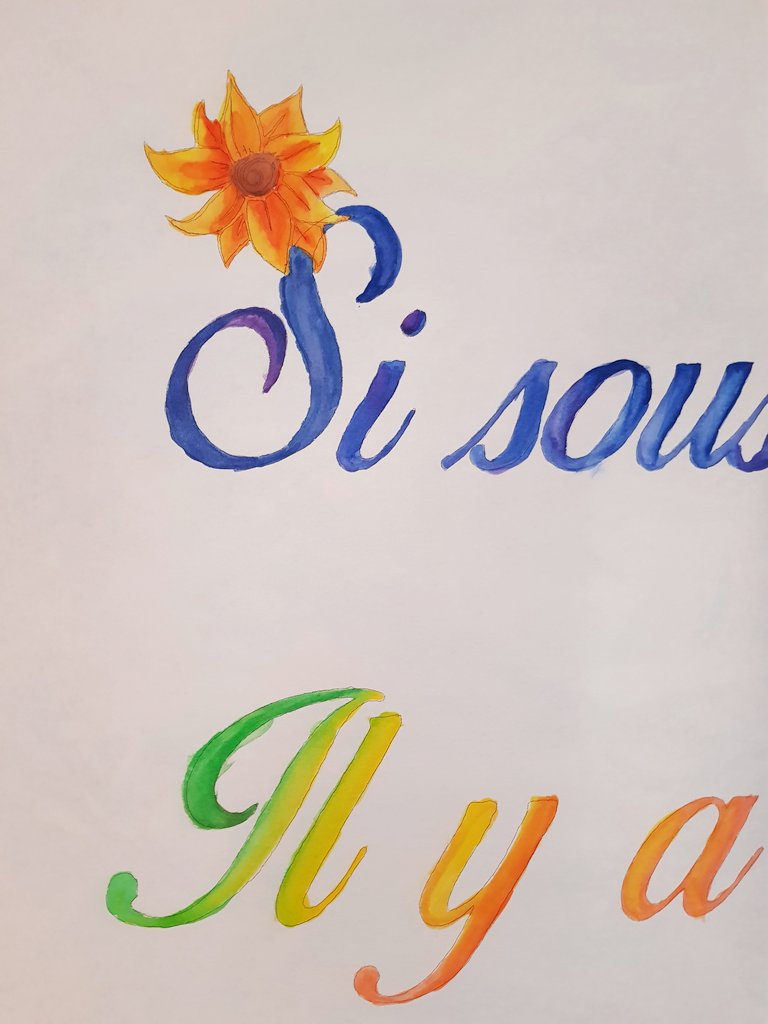 Si sous
Il y a